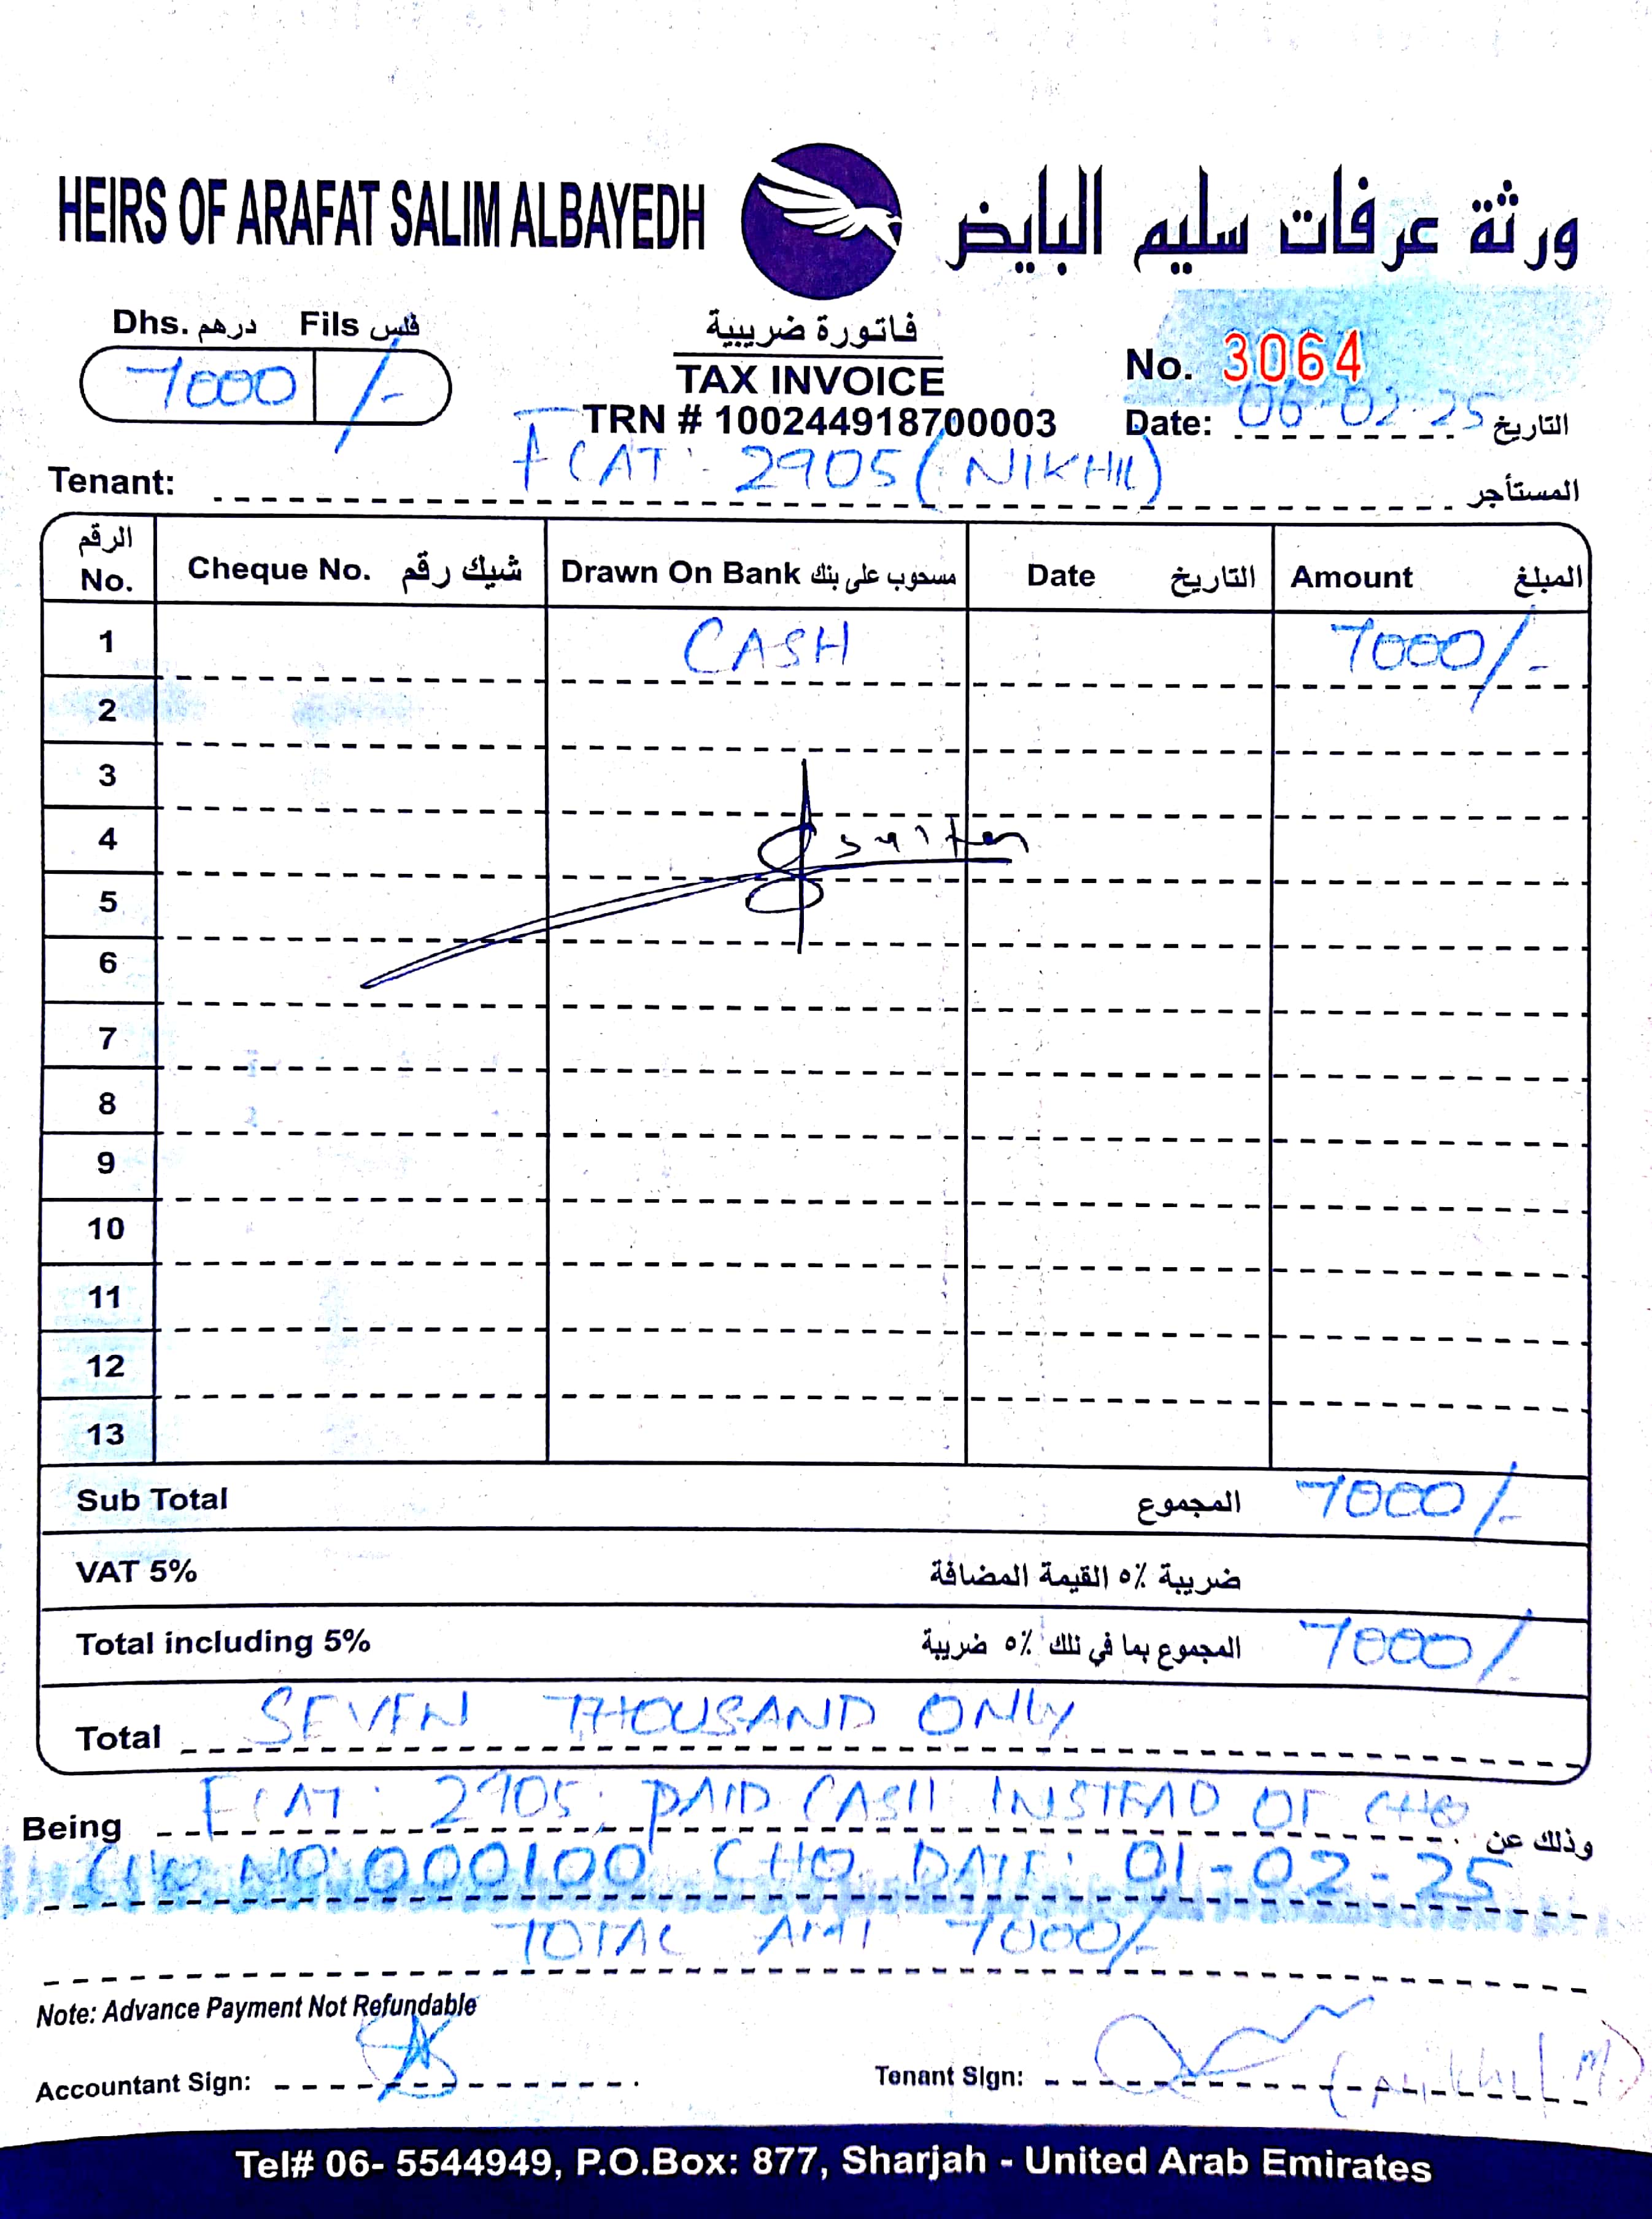 HEIRS OF ARAFAT SALIM ALBAYEDH ورثة عرفات سليم البايض
Dhs. درهم Fils فلس
7000 /-
فاتورة ضريبية
TAX INVOICE
TRN # 100244918700003
No. 3064
Date: 06-02-25 التاريخ
Tenant: FLAT: 2905 (NIKHIL) المستأجر
الرقم No. Cheque No. شيك رقم Drawn On Bank مسحوب على بنك Date التاريخ Amount المبلغ
1 CASH 7000/-
2
3
4
5
6
7
8
9
10
11
12
13
Sub Total المجموع 7000/-
VAT 5% ضريبة ٥٪ القيمة المضافة
Total including 5% المجموع بما في ذلك ٥٪ ضريبة 7000/
Total SEVEN THOUSAND ONLY
Being FLAT: 2905, PAID CASH INSTEAD OF CHQ وذلك عن
CHQ NO: 000100 CHQ DATE: 01-02-25
TOTAL AMT 7000/-
Note: Advance Payment Not Refundable
Accountant Sign: Tenant Sign: (Nikhil M)
Tel# 06- 5544949, P.O.Box: 877, Sharjah - United Arab Emirates